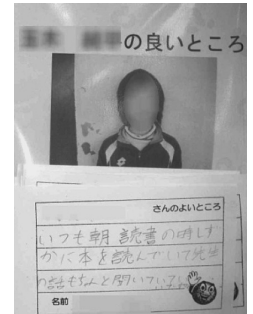 の良いところ
さんのよいところ
いつも朝読書の時しず
かに本を読んでいて先生
の話もちゃんと聞いていて
名前